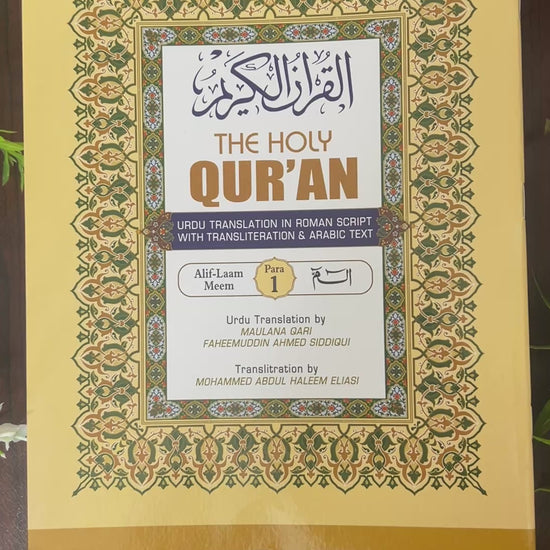 القرآن الكريم
THE HOLY
QUR'AN
URDU TRANSLATION IN ROMAN SCRIPT
WITH TRANSLITERATION & ARABIC TEXT
Alif-Laam
Meem
Para
1
الٓمّٓ
Urdu Translation by
MAULANA QARI
FAHEEMUDDIN AHMED SIDDIQUI
Translitration by
MOHAMMED ABDUL HALEEM ELIASI